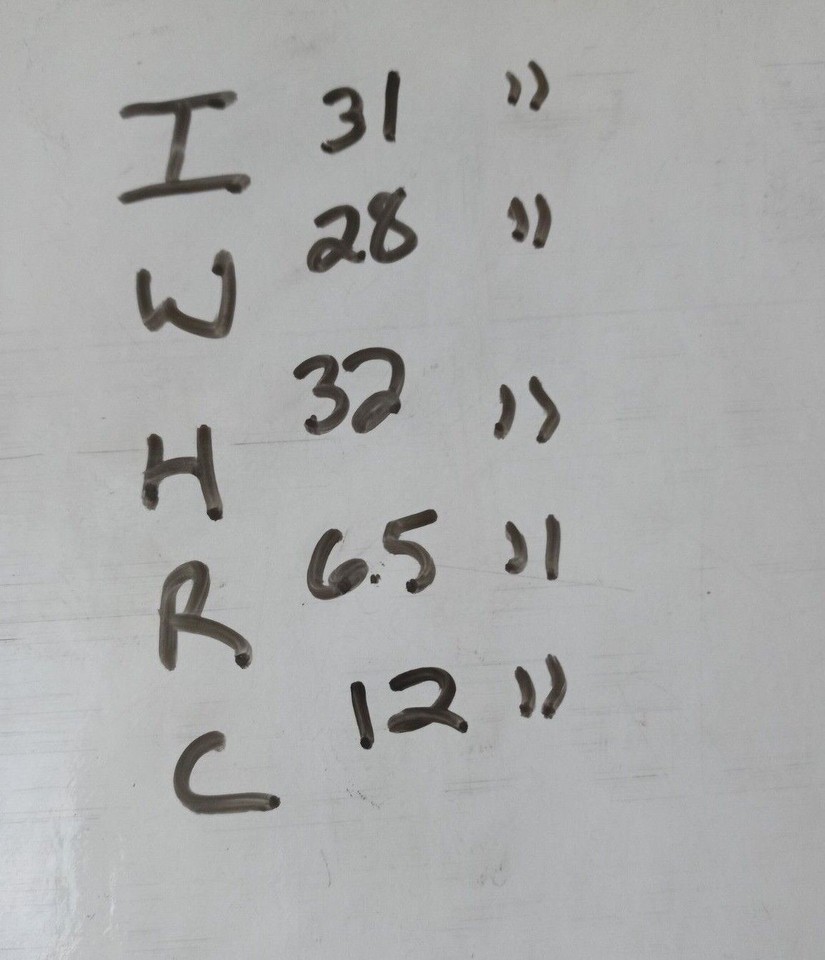 I 31 "
W 28 "
H 32 "
R 6.5 "
C 12 "